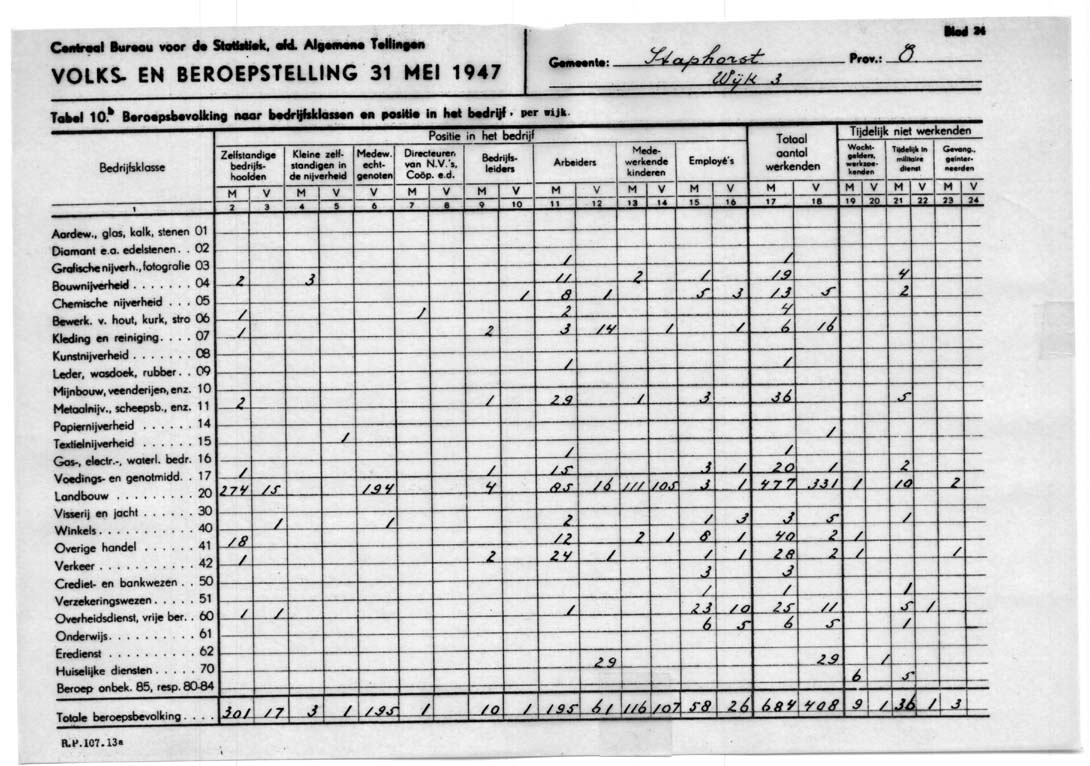 Centraal Bureau voor de Statistiek, afd. Algemene Tellingen
Blad 24
VOLKS- EN BEROEPSTELLING 31 MEI 1947
Gemeente: Staphorst Prov.: O
Wijk 3
Tabel 10.b Beroepsbevolking naar bedrijfsklassen en positie in het bedrijf, per wijk.
Bedrijfsklasse Positie in het bedrijf Totaal aantal werkenden Tijdelijk niet werkenden
Zelfstandige bedrijfs-hoofden Kleine zelf-standigen in de nijverheid Medew. echt-genoten Directeuren van N.V.'s, Coöp. e.d. Bedrijfs-leiders Arbeiders Mede-werkende kinderen Employé's Wacht-gelders, werkzoe-kenden Tijdelijk in militaire dienst Gevang., geïnter-neerden
M V M V V M V M V M V M V M V M V M V M V M V
1 2 3 4 5 6 7 8 9 10 11 12 13 14 15 16 17 18 19 20 21 22 23 24
Aardew., glas, kalk, stenen 01
Diamant e.a. edelstenen . . 02
Grafische nijverh., fotografie 03 1 1
Bouwnijverheid . . . . . . . 04 2 3 11 2 1 19 4
Chemische nijverheid . . . 05 1 8 1 5 3 13 5 2
Bewerk. v. hout, kurk, stro 06 1 1 2 4
Kleding en reiniging. . . . 07 1 2 3 14 1 1 6 16
Kunstnijverheid . . . . . . . 08
Leder, wasdoek, rubber. . 09 1 1
Mijnbouw, veenderijen, enz. 10
Metaalnijv., scheepsb., enz. 11 2 1 29 1 3 36 5
Papiernijverheid . . . . . . 14
Textielnijverheid . . . . . . 15 1 1
Gas-, electr.-, waterl. bedr. 16 1 1
Voedings- en genotmidd. . 17 1 1 15 3 1 20 1 2
Landbouw . . . . . . . . . 20 274 15 194 4 85 16 111 105 3 1 477 331 1 10 2
Visserij en jacht . . . . . . 30
Winkels. . . . . . . . . . . . 40 1 1 2 1 3 3 5 1
Overige handel . . . . . . 41 18 12 2 1 8 1 40 2 1
Verkeer . . . . . . . . . . . 42 1 2 24 1 1 1 28 2 1 1
Crediet- en bankwezen . . 50 3 3
Verzekeringswezen. . . . . 51 1 1 1
Overheidsdienst, vrije ber. . 60 1 1 1 23 10 25 11 5 1
Onderwijs. . . . . . . . . . 61 6 5 6 5 1
Eredienst . . . . . . . . . . 62
Huiselijke diensten . . . . . 70 29 29 1
Beroep onbek. 85, resp. 80-84 6 5
Totale beroepsbevolking . . . . 301 17 3 1 195 1 10 1 195 61 116 107 58 26 684 408 9 1 36 1 3
R.P.107.13a